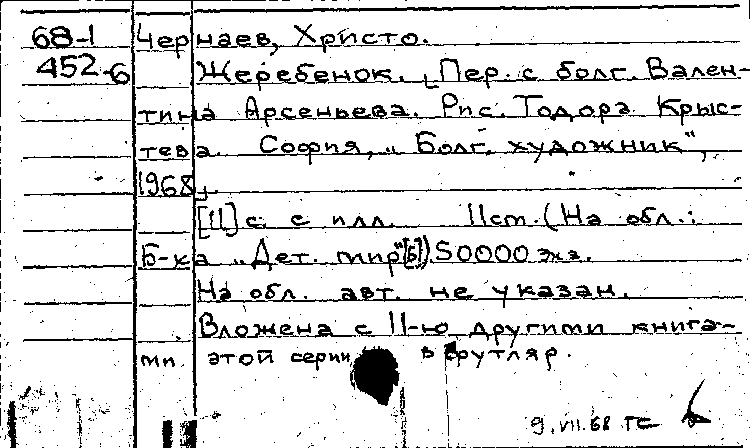 68-1 Чернаев, Христо.
452-6 Жеребенок. [Пер. с болг. Вален-
тина Арсеньева. Рис. Тодора Крыс-
тева. София, „Болг. художник",
1968].
[11] с. с илл. 11 см. (На обл.:
Б-ка „Дет. мир" [6]) 50000 экз.
На обл. авт. не указан.
Вложена с 11-ю другими книга-
ми этой серии в футляр.
9.VII.68 ТС